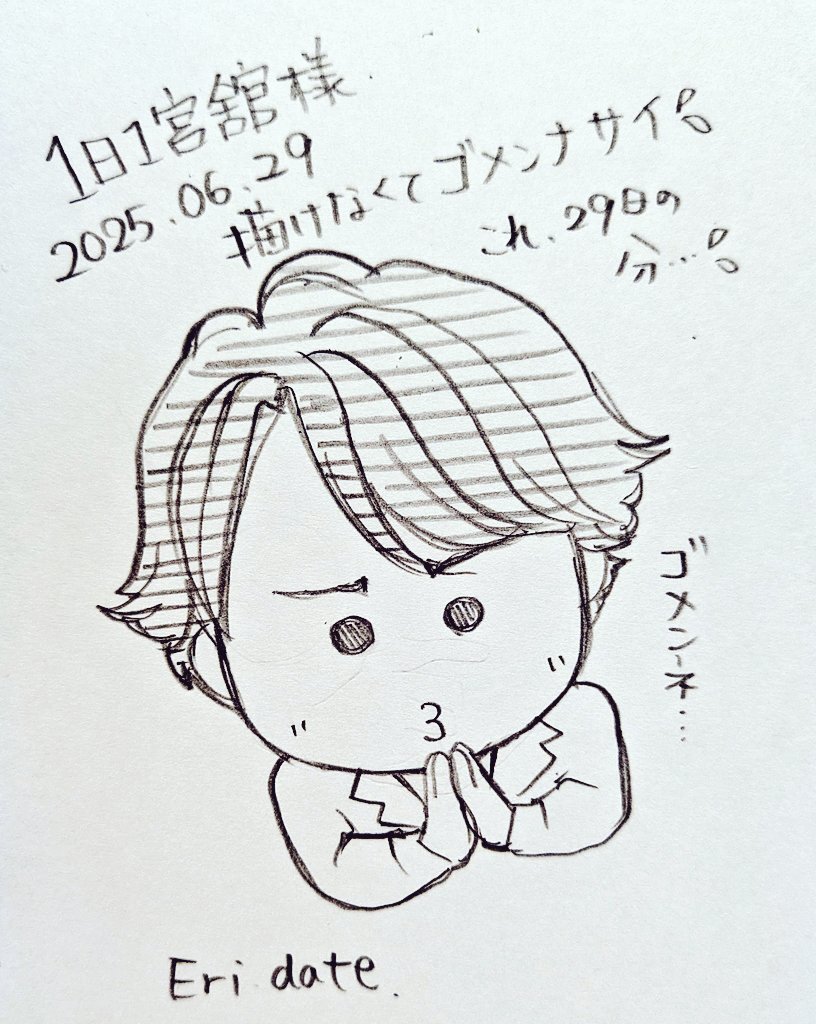 1日1宮舘様
2025.06.29
描けなくてゴメンナサイ
これ、29日の
分…
ゴメンネ…
Eri date.